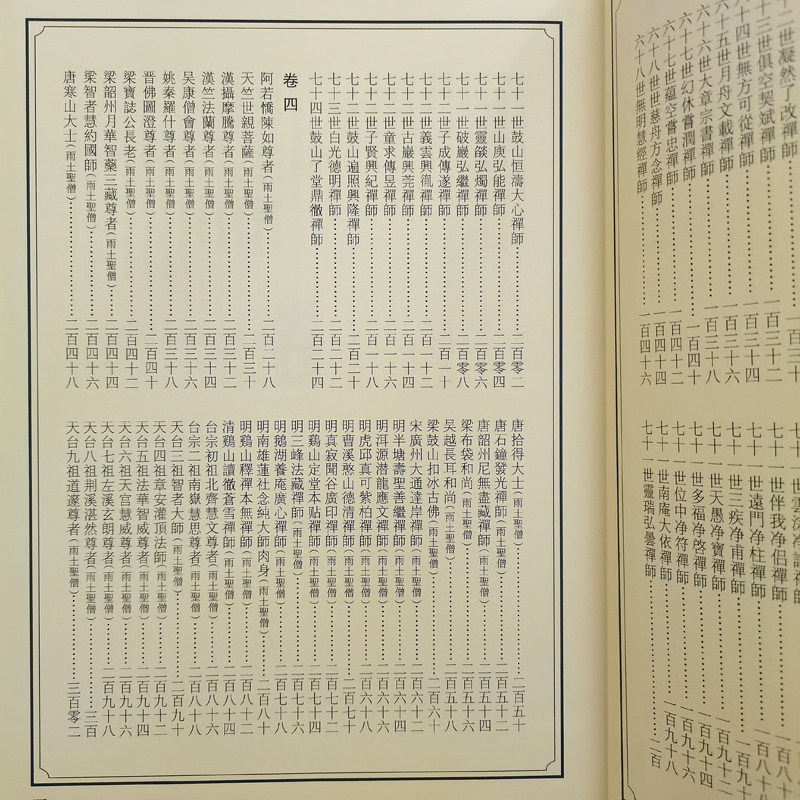 十二世凝然了改禪師
十三世俱空契斌禪師……一百三十二
十四世無方可從禪師……一百三十四
六十五世月舟文載禪師
六十六世大章宗書禪師……一百三十八
六十七世幻休嘗潤禪師……一百四十
六十七世蘊空嘗忠禪師……一百四十二
六十八世慈舟方念禪師……一百四十四
六十八世無明慧經禪師……一百四十六
世伴我净侶禪師
世遠門净柱禪師
世三疾净甫禪師
七十一世天愚净寶禪師
七十一世多福净啓禪師……一百九十四
七十一世位中净符禪師……一百九十六
七十一世南庵大依禪師……一百九十八
七十一世靈瑞弘曇禪師……二百
七十一世鼓山恒濤大心禪師……二百零二
七十一世山庚弘能禪師……二百零四
七十一世靈燄弘燭禪師……二百零六
七十一世破巖弘繼禪師……二百零八
七十二世子成傳遂禪師……二百一十
七十二世義雲興禪師……二百一十二
七十二世古巖興莞禪師……二百一十四
七十二世童求傳昱禪師……二百一十六
七十二世子賢興紀禪師……二百一十八
七十二世鼓山遍照興隆禪師……二百二十
七十三世白光德明禪師……二百二十二
七十四世鼓山了堂鼎徹禪師……二百二十四
卷四
阿若憍陳如尊者（雨土聖僧）……二百二十八
天竺世親菩薩（雨土聖僧）……二百三十
漢攝摩騰尊者（雨土聖僧）……二百三十二
漢竺法蘭尊者（雨土聖僧）……二百三十四
吴康僧會尊者（雨土聖僧）……二百三十六
姚秦羅什尊者（雨土聖僧）……二百三十八
晉佛圖澄尊者（雨土聖僧）……二百四十
梁寶誌公長老（雨土聖僧）……二百四十二
梁韶州月華智藥三藏尊者（雨土聖僧）……二百四十四
梁智者慧約國師（雨土聖僧）……二百四十六
唐寒山大士（雨土聖僧）……二百四十八
唐拾得大士（雨土聖僧）……二百五十
唐石鐘發光禪師（雨土聖僧）……二百五十二
唐韶州尼無盡藏禪師（雨土聖僧）……二百五十四
梁布袋和尚（雨土聖僧）……二百五十六
吴越長耳和尚（雨土聖僧）……二百五十八
梁鼓山扣冰古佛（雨土聖僧）……二百六十
宋廣州大通達岸禪師（雨土聖僧）……二百六十二
明半塘壽聖善繼禪師（雨土聖僧）……二百六十四
明洱源潛龍應文禪師（雨土聖僧）……二百六十六
明虎邱真可紫柏禪師（雨土聖僧）……二百六十八
明曹溪憨山德清禪師（雨土聖僧）……二百七十
明真寂聞谷廣印禪師（雨土聖僧）……二百七十二
明鷄山定堂本貼禪師（雨土聖僧）……二百七十四
明三峰法藏禪師（雨土聖僧）……二百七十六
明鵝湖養庵廣心禪師（雨土聖僧）……二百七十八
明南雄蓮社念純大師肉身（雨土聖僧）……二百八十
明鷄山釋禪本無禪師（雨土聖僧）……二百八十二
清鷄山讀徹蒼雪禪師（雨土聖僧）……二百八十四
台宗初祖北齊慧文尊者（雨土聖僧）……二百八十六
台宗二祖南嶽慧思尊者（雨土聖僧）……二百八十八
天台三祖智者大師（雨土聖僧）……二百九十
天台四祖章安灌頂法師（雨土聖僧）……二百九十二
天台五祖法華智威尊者（雨土聖僧）……二百九十四
天台六祖天宫慧威尊者（雨土聖僧）……二百九十六
天台七祖左溪玄朗尊者（雨土聖僧）……二百九十八
天台八祖荆溪湛然尊者（雨土聖僧）……三百
天台九祖道邃尊者（雨土聖僧）……三百零二